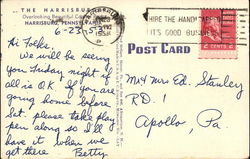 ...THE HARRISBURG
Overlooking Beautiful
HARRISBURG, PENNSYLVANIA
6-23
Hi Folks,
We will be seeing
you Friday night if
all is O.K. If you are
going home before
Sat. please take play
pen along so I'll
have it when we
get there Betty
HIRE THE HANDICAPPED
IT'S GOOD BUSINESS
POST CARD
2 CENTS 2
Mr + Mrs Ed. Stanley
R.D. 1
Apollo, Pa